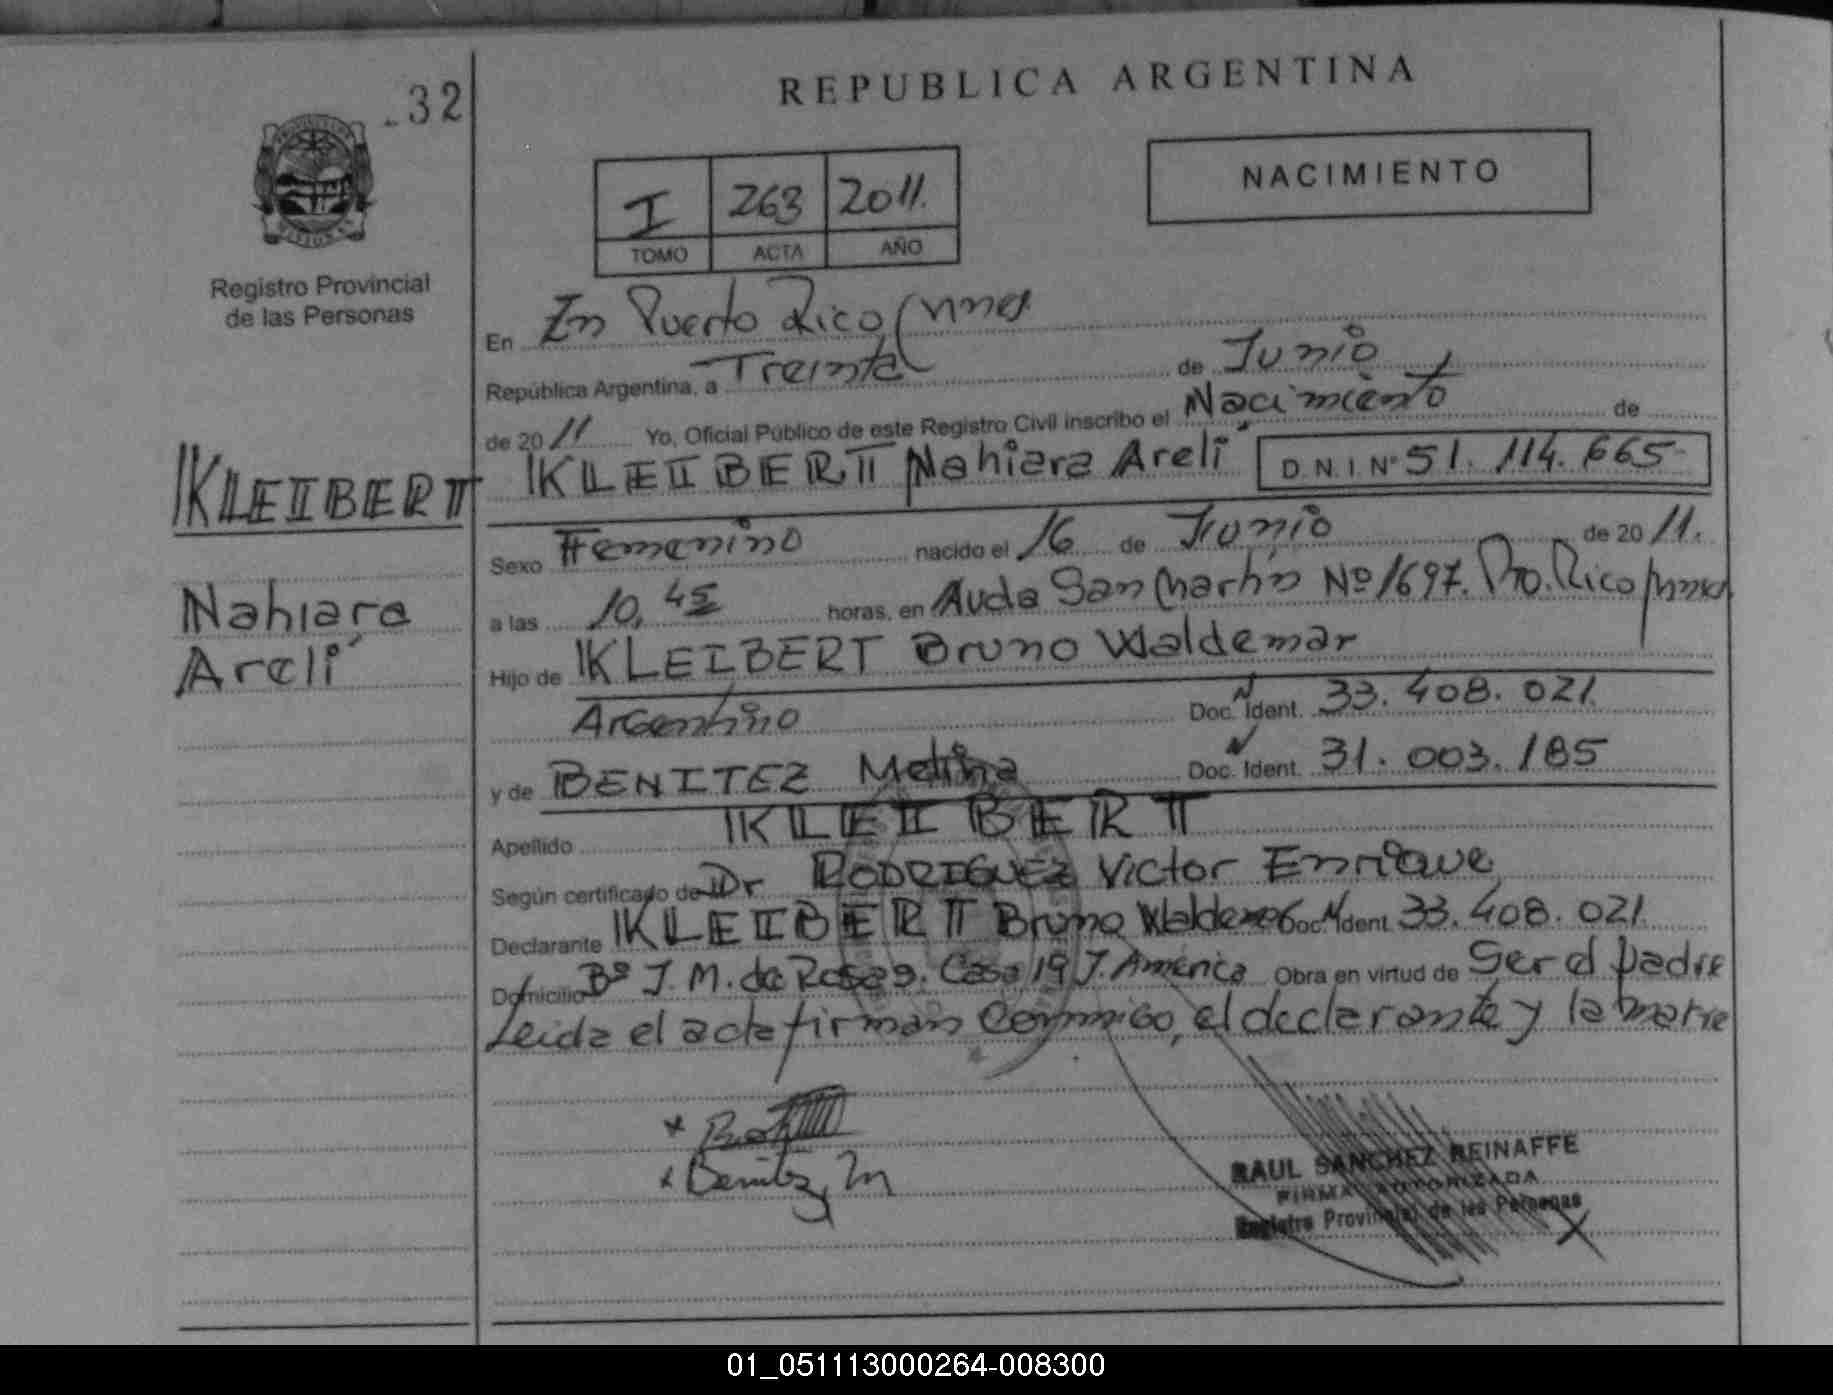 32
REPUBLICA ARGENTINA
NACIMIENTO
I 263 2011.
TOMO ACTA AÑO
Registro Provincial
de las Personas
En En Puerto Rico, Mnes
República Argentina, a Treinta de Junio
de 2011 Yo, Oficial Público de este Registro Civil inscribo el Nacimiento de
KLEIBERT Nahiara Arelí D.N.I. Nº 51.114.665-
KLEIBERT
Nahiara
Arelí
Sexo Femenino nacido el 16 de Junio de 2011.
a las 10,45 horas, en Avda San Martín Nº 1697. Pto. Rico Mnes
Hijo de KLEIBERT Bruno Waldemar
Argentino Doc. Ident. 33.408.021.
y de BENITEZ Melina Doc. Ident. 31.003.185
Apellido KLEIBERT
Según certificado de Dr RODRIGUEZ Victor Enrique
Declarante KLEIBERT Bruno Waldemar Doc. Ident. 33.408.021.
Domicilio Bº J.M. de Rosas. Casa 19 J. América Obra en virtud de Ser el padre
Leida el acta firman conmigo, el declarante y la madre
x
x Benitez, M
RAUL SANCHEZ REINAFFE
FIRMA AUTORIZADA
Registro Provincial de las Personas
X
01_051113000264-008300